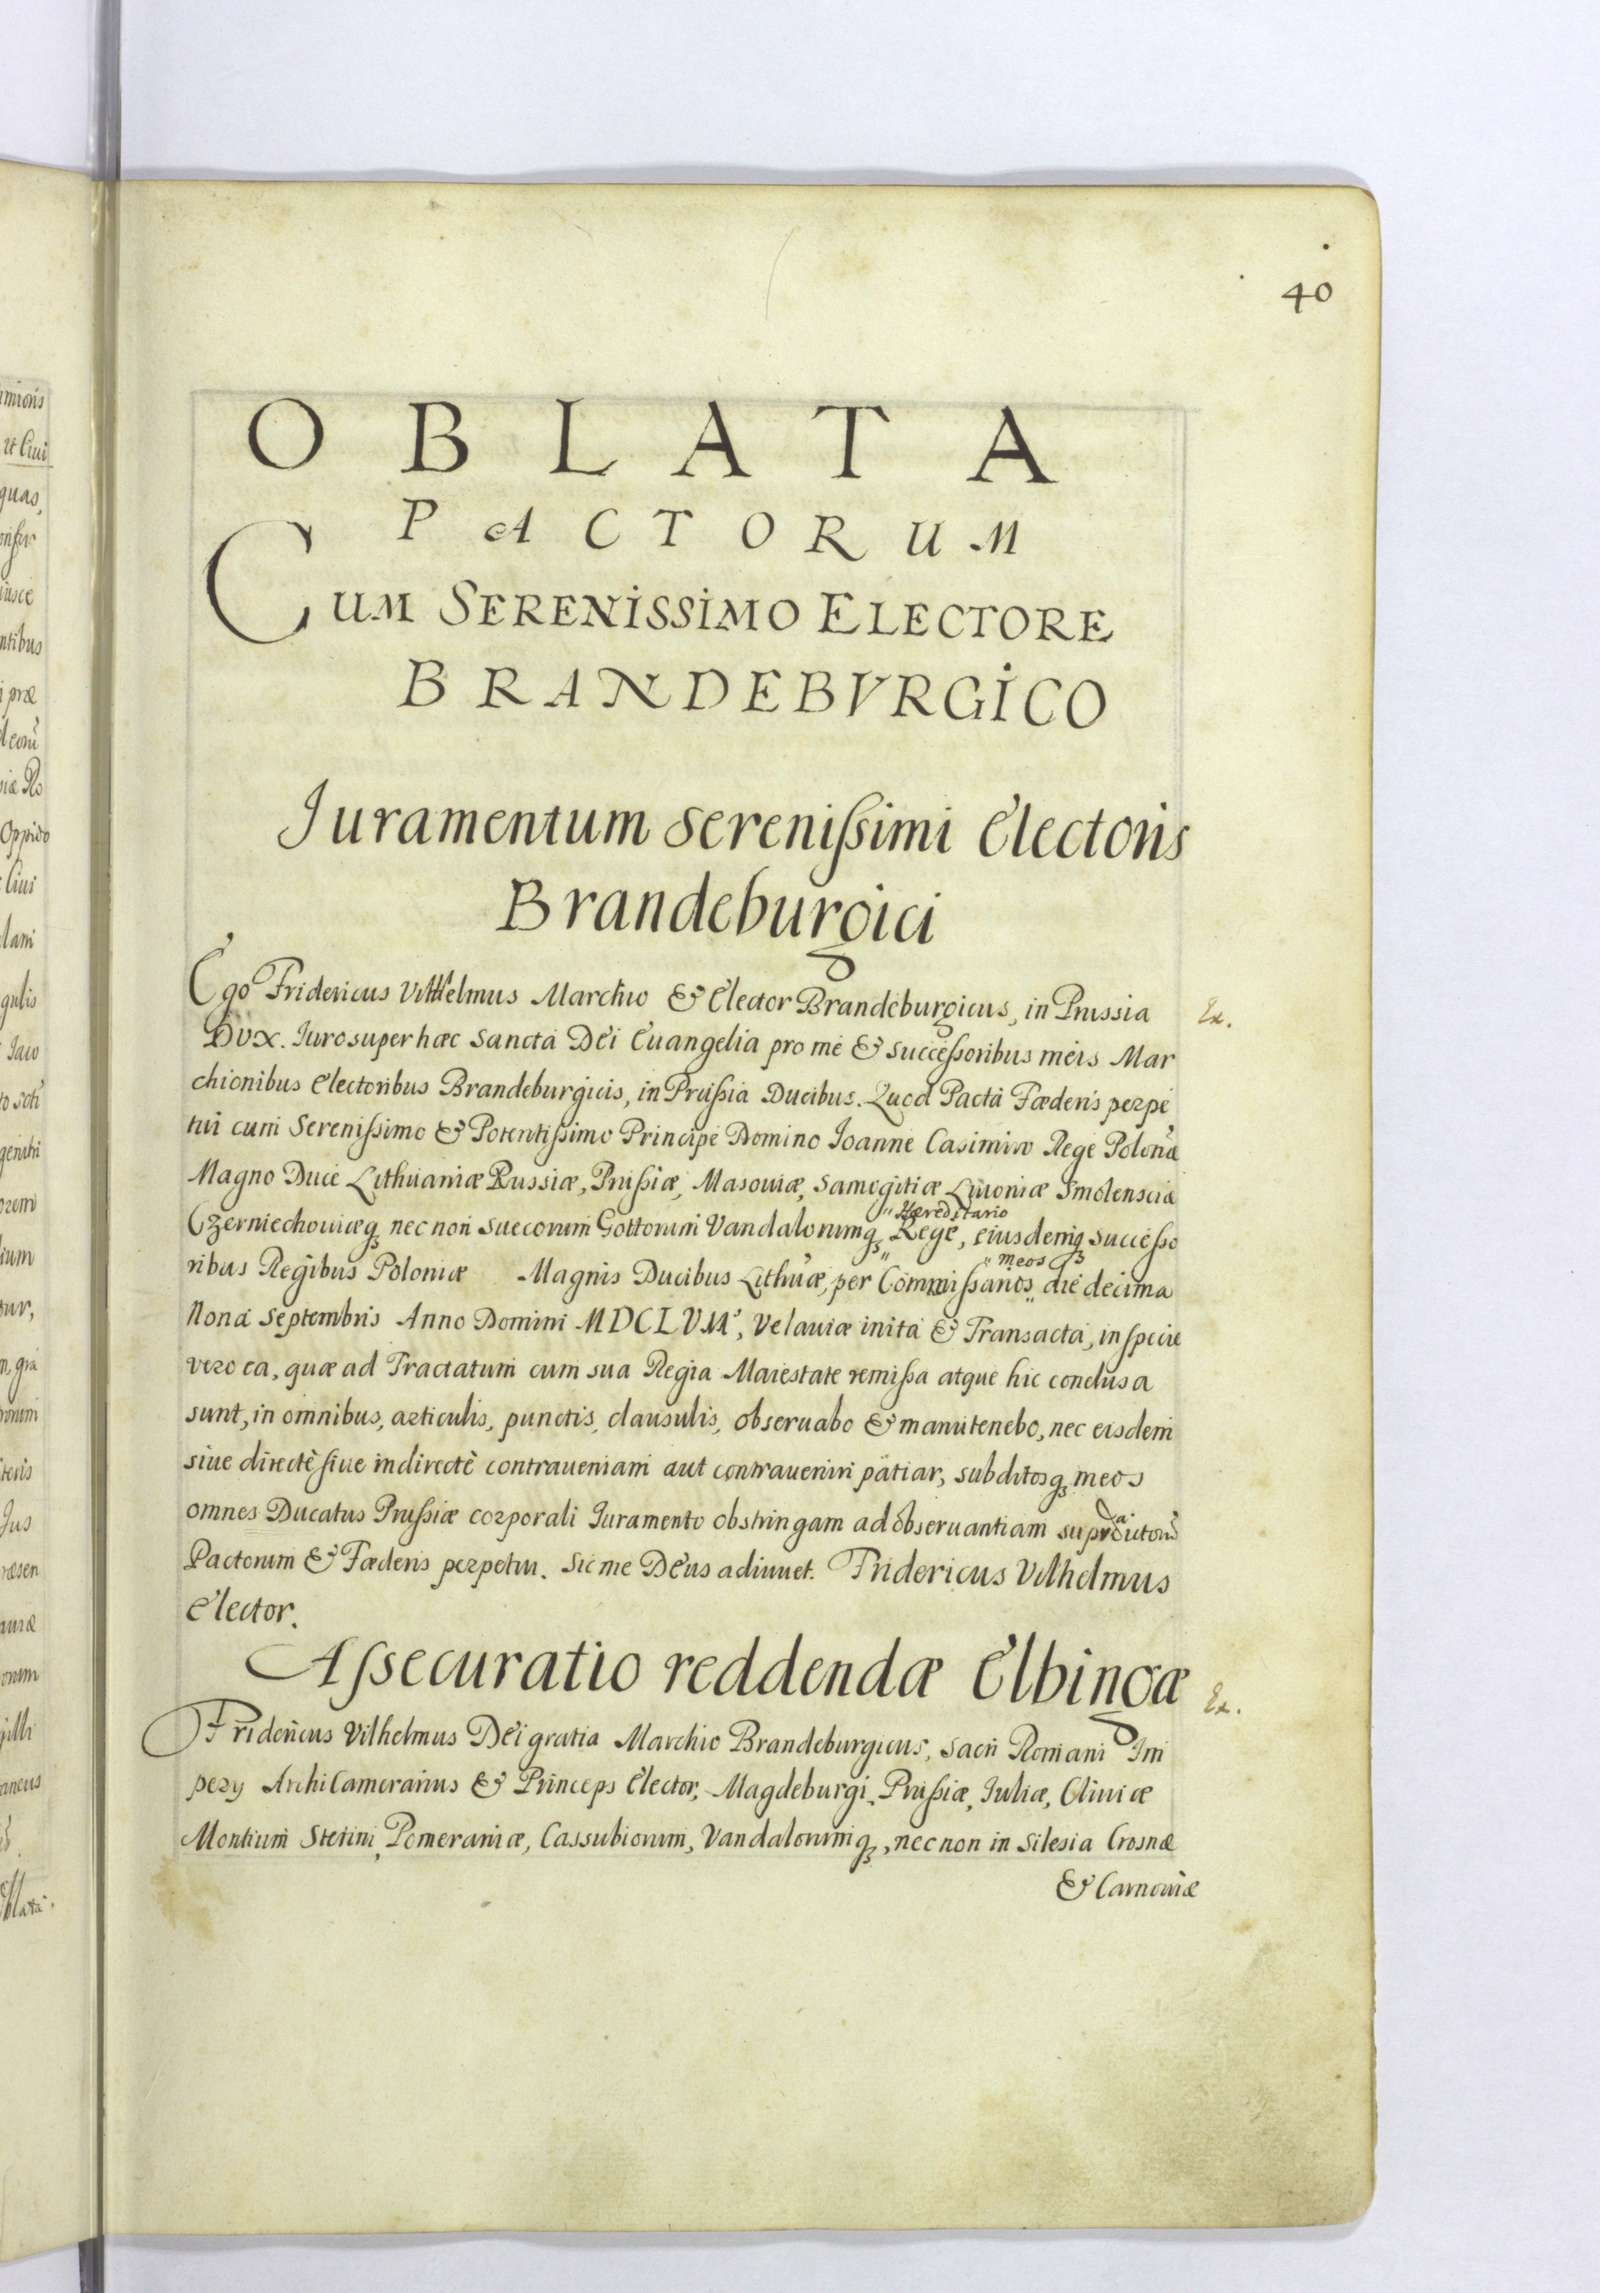 40
OBLATA
PACTORUM
CUM SERENISSIMO ELECTORE
BRANDEBVRGICO
Iuramentum Serenißimi Electoris
Brandeburgici
Ego Fridericus Vilhelmus Marchio & Elector Brandeburgicus, in Prussia
Ex.
DUX. Iuro super hæc Sancta Dei Euangelia pro me & Successoribus meis Mar
chionibus Electoribus Brandeburgicis, in Prußia Ducibus. Quod Pacta Fœderis perpe
tui cum Serenißimo & Potentißimo Principe Domino Ioanne Casimiro Rege Poloniæ
Magno Duce Lithuaniæ Russiæ, Prußiæ, Masouiæ, Samogitiæ Liuoniæ Smolenscia
Hæreditario
Czerniechouiæq, nec non Suecorum Gottorum Vandalorumq, Rege, eiusdemq successo
meos
ribus Regibus Poloniæ Magnis Ducibus Lithuæ, per Commißarios die decima
Nona Septembris Anno Domini MDCLVII, Velauiæ inita & Transacta, in specie
vero ea, quæ ad Tractatum cum sua Regia Maiestate remißa atque hic conclusa
sunt, in omnibus, articulis, punctis, clausulis, obseruabo & manutenebo, nec eisdem
siue directè siue indirectè contraueniam aut contraueniri patiar, subditosq meos
omnes Ducatus Prußiæ corporali Iuramento obstringam ad obseruantiam supradictorũ
Pactorum & Fæderis perpetui. Sic me Deus adiuuet. Fridericus Vilhelmus
Elector.
Aßecuratio reddendæ Elbingæ
Ex.
Fridericus Vilhelmus Dei gratia Marchio Brandeburgicus, Sacri Romani Im
pery Archi Camerarius & Princeps Elector, Magdeburgi, Prußiæ, Iuliæ, Cliuiæ
Montium Stetini, Pomeraniæ, Cassubiorum, Vandalorumq, nec non in Silesia Crosnæ
& Carnouiæ